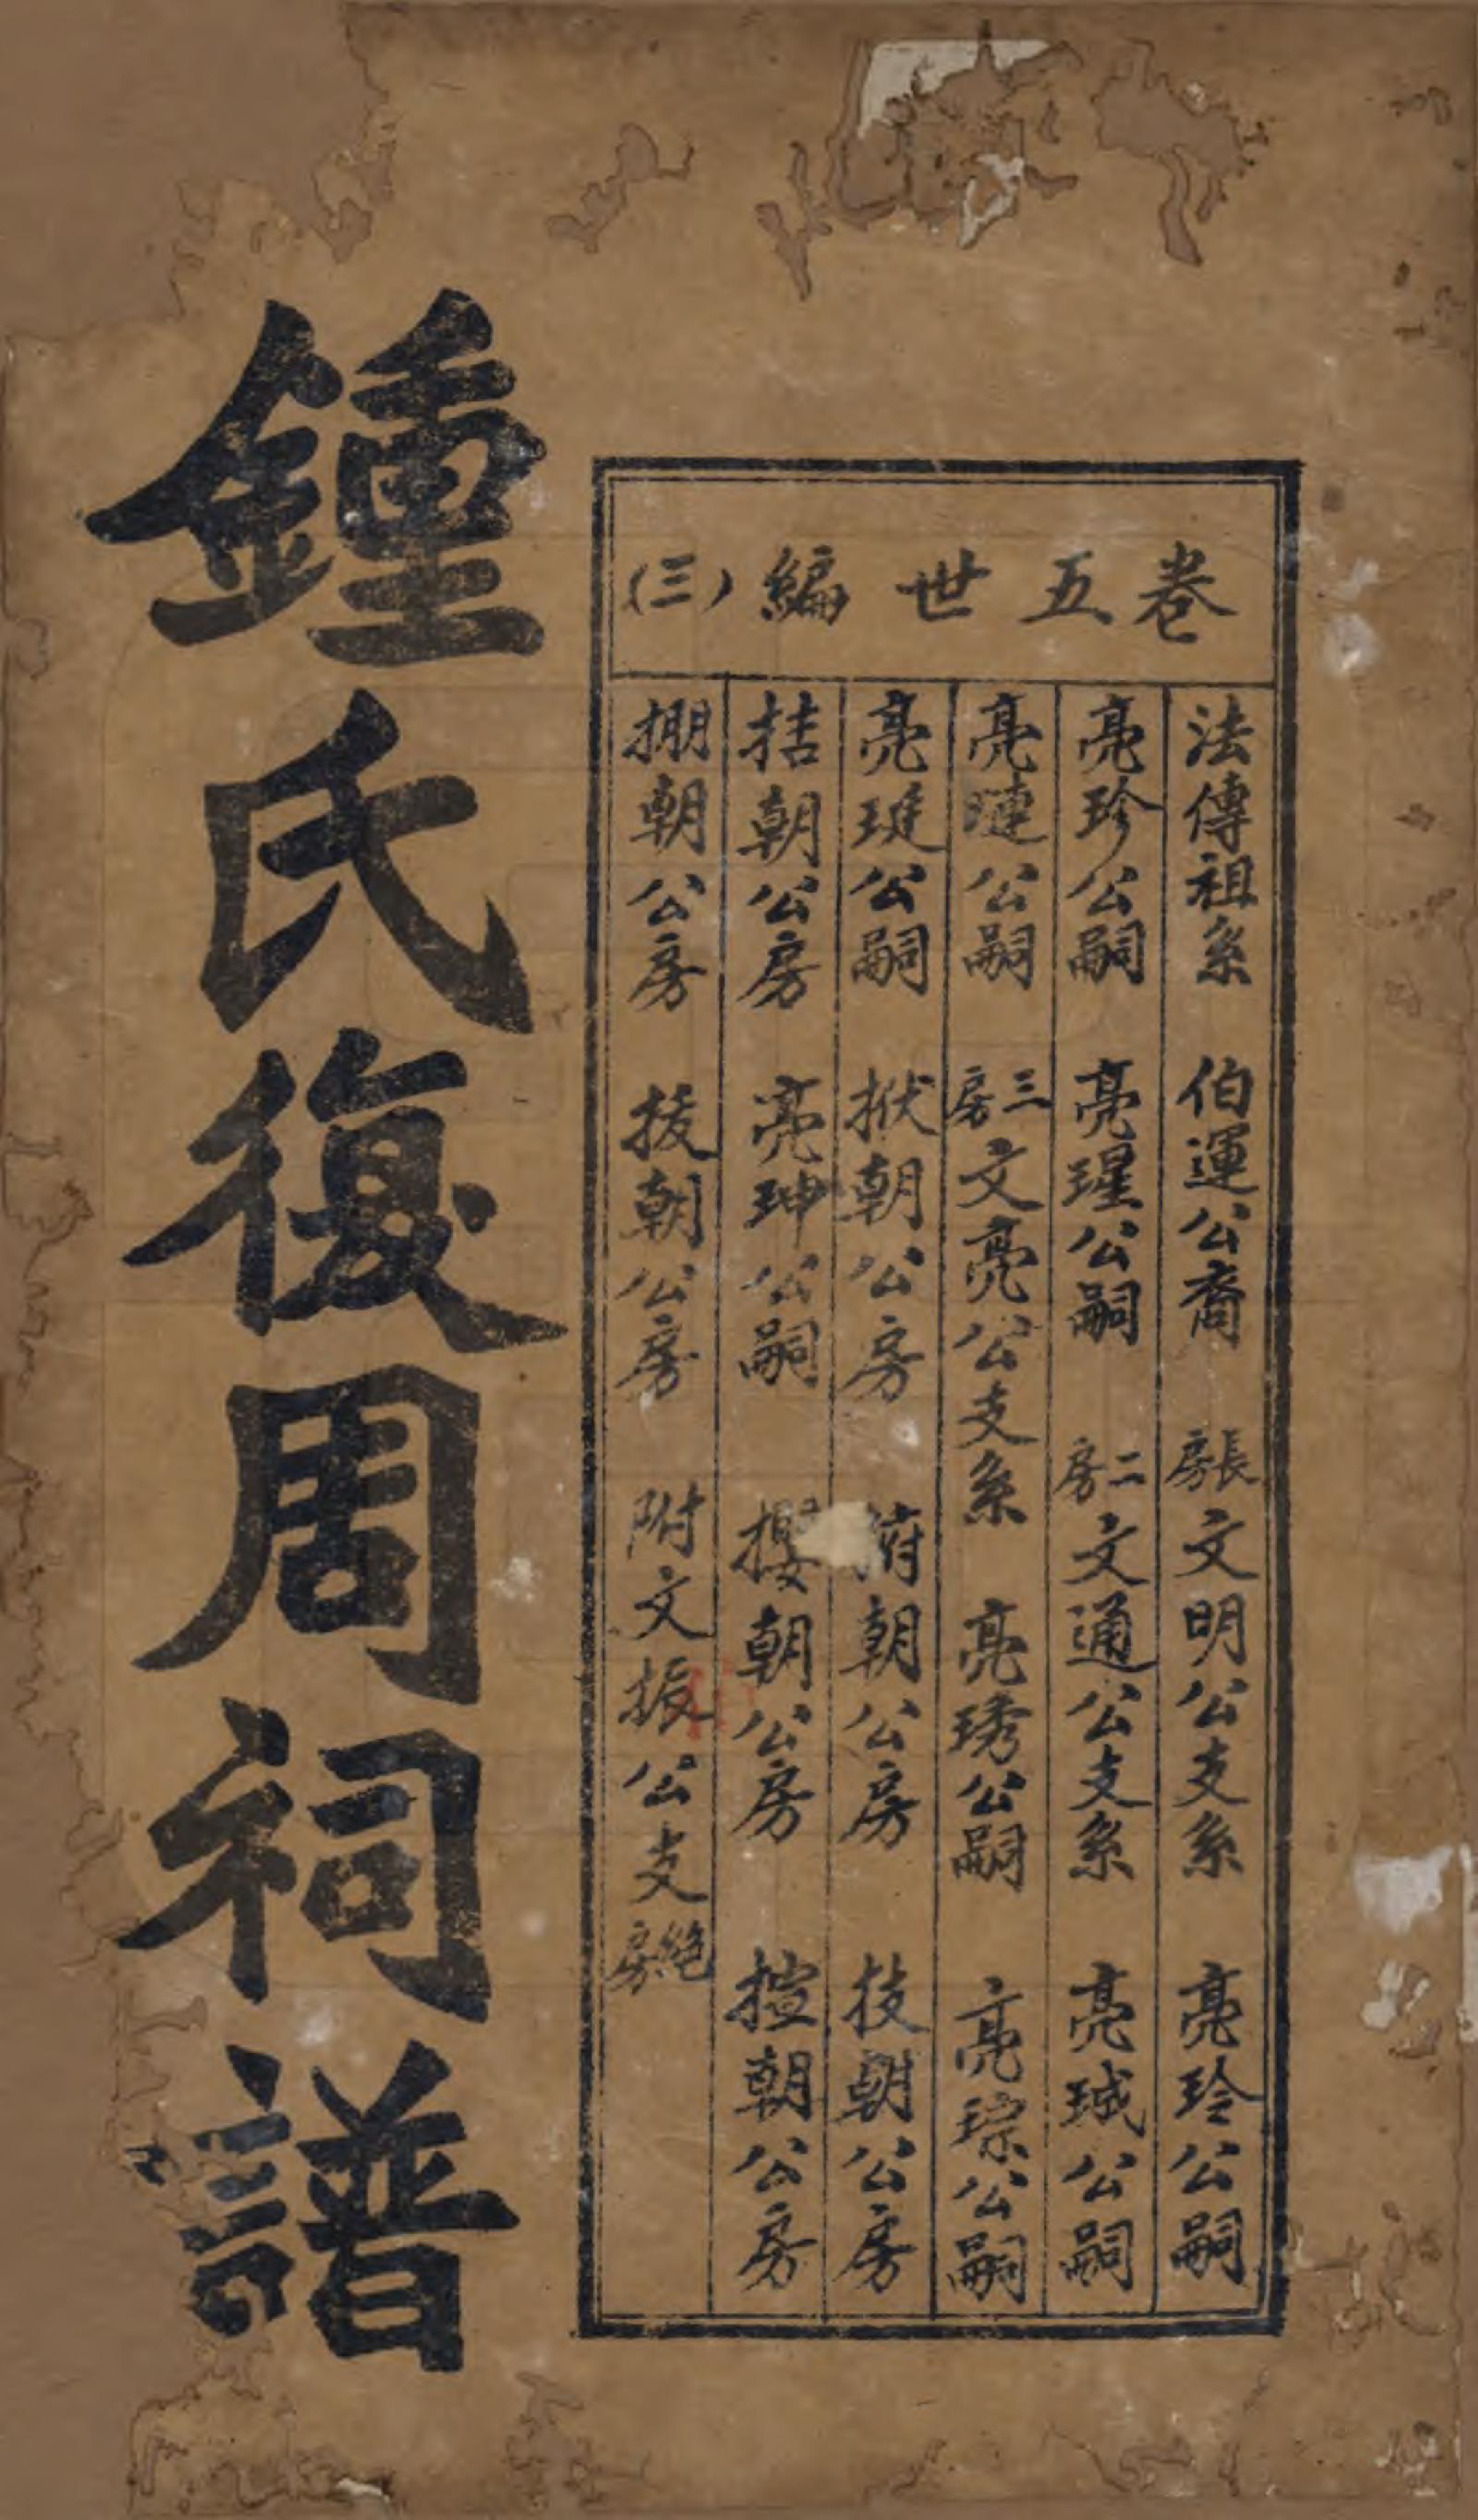 卷五世編(三)
法傳祖系　伯運公裔　長房文明公支系　亮玲公嗣
亮珍公嗣　亮瑆公嗣　二房文通公支系　亮珹公嗣
亮璉公嗣　三房文亮公支系　亮琇公嗣　亮琮公嗣
亮琎公嗣　㧋朝公房　朝公房　技朝公房
括朝公房　亮珅公嗣　攖朝公房　揎朝公房
掤朝公房　拔朝公房　附文振公支絶房
鍾氏復周祠譜